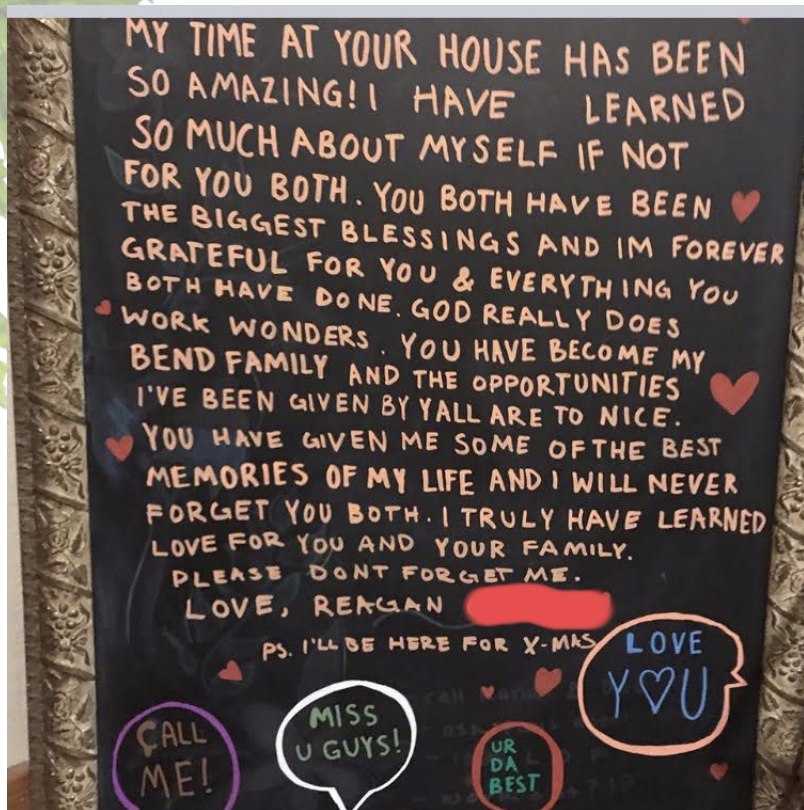 MY TIME AT YOUR HOUSE HAS BEEN
SO AMAZING! I HAVE LEARNED
SO MUCH ABOUT MYSELF IF NOT
FOR YOU BOTH. YOU BOTH HAVE BEEN
THE BIGGEST BLESSINGS AND IM FOREVER
GRATEFUL FOR YOU & EVERYTHING YOU
BOTH HAVE DONE. GOD REALLY DOES
WORK WONDERS. YOU HAVE BECOME MY
BEND FAMILY AND THE OPPORTUNITIES
I'VE BEEN GIVEN BY YALL ARE TO NICE.
YOU HAVE GIVEN ME SOME OF THE BEST
MEMORIES OF MY LIFE AND I WILL NEVER
FORGET YOU BOTH. I TRULY HAVE LEARNED
LOVE FOR YOU AND YOUR FAMILY.
PLEASE DONT FORGET ME.
LOVE, REAGAN
PS. I'LL BE HERE FOR X-MAS
LOVE
Y♡U
CALL
ME!
MISS
U GUYS!
UR
DA
BEST